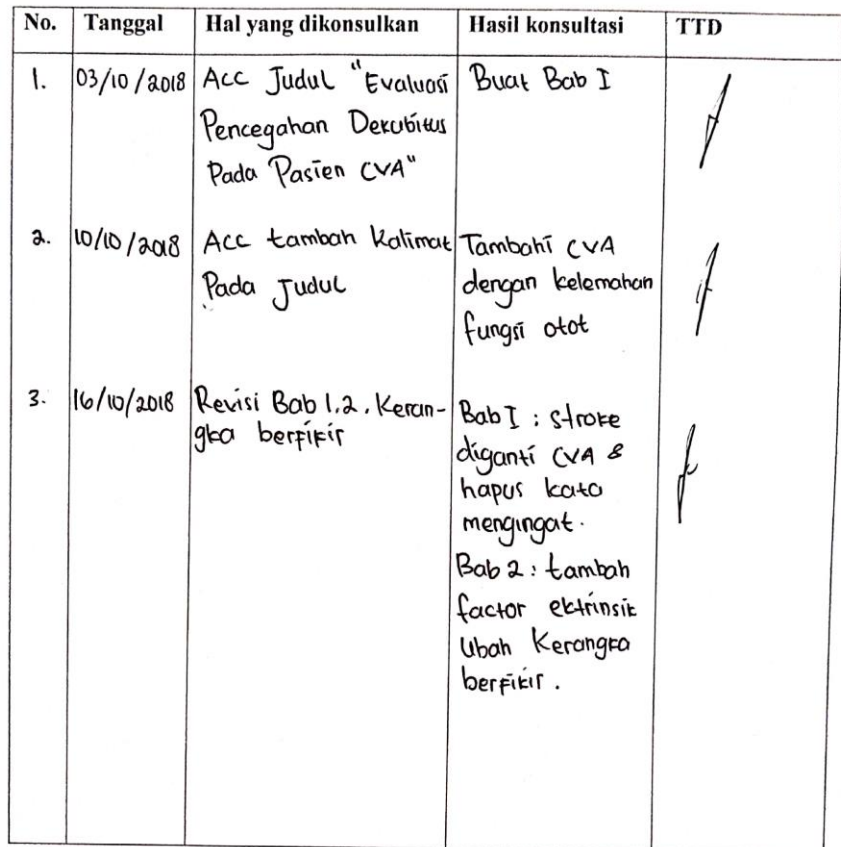 No. Tanggal Hal yang dikonsulkan Hasil konsultasi TTD
1. 03/10/2018 Acc Judul "Evaluasi Buat Bab I
Pencegahan Dekubitus
Pada Pasien CVA"
2. 10/10/2018 Acc tambah Kalimat Tambahi CVA
Pada Judul dengan kelemahan
fungsi otot
3. 16/10/2018 Revisi Bab 1,2, Keran- Bab I : stroke
gka berfikir diganti CVA &
hapus kata
mengingat.
Bab 2 : tambah
factor ektrinsik
Ubah Kerangka
berfikir.